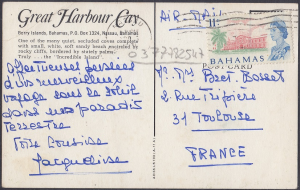 Great Harbour Cay
Berry Islands, Bahamas, P.O. Box 1324, Nassau, Bahamas
One of the many quiet, secluded coves complete
with small, white, soft sandy beach protected by
rocky cliffs, bordered by stately palms.
Truly — the "Incredible Island"
affectueuses pensées
d'un merveilleux
voyage sous le soleil
dans un paradis
terrestre
Votre cousine
Jacqueline
AIR MAIL
037792547
BAHAMAS
POST CARD
Mr Mme Bret
2 Rue Tripière
31 Toulouse
FRANCE